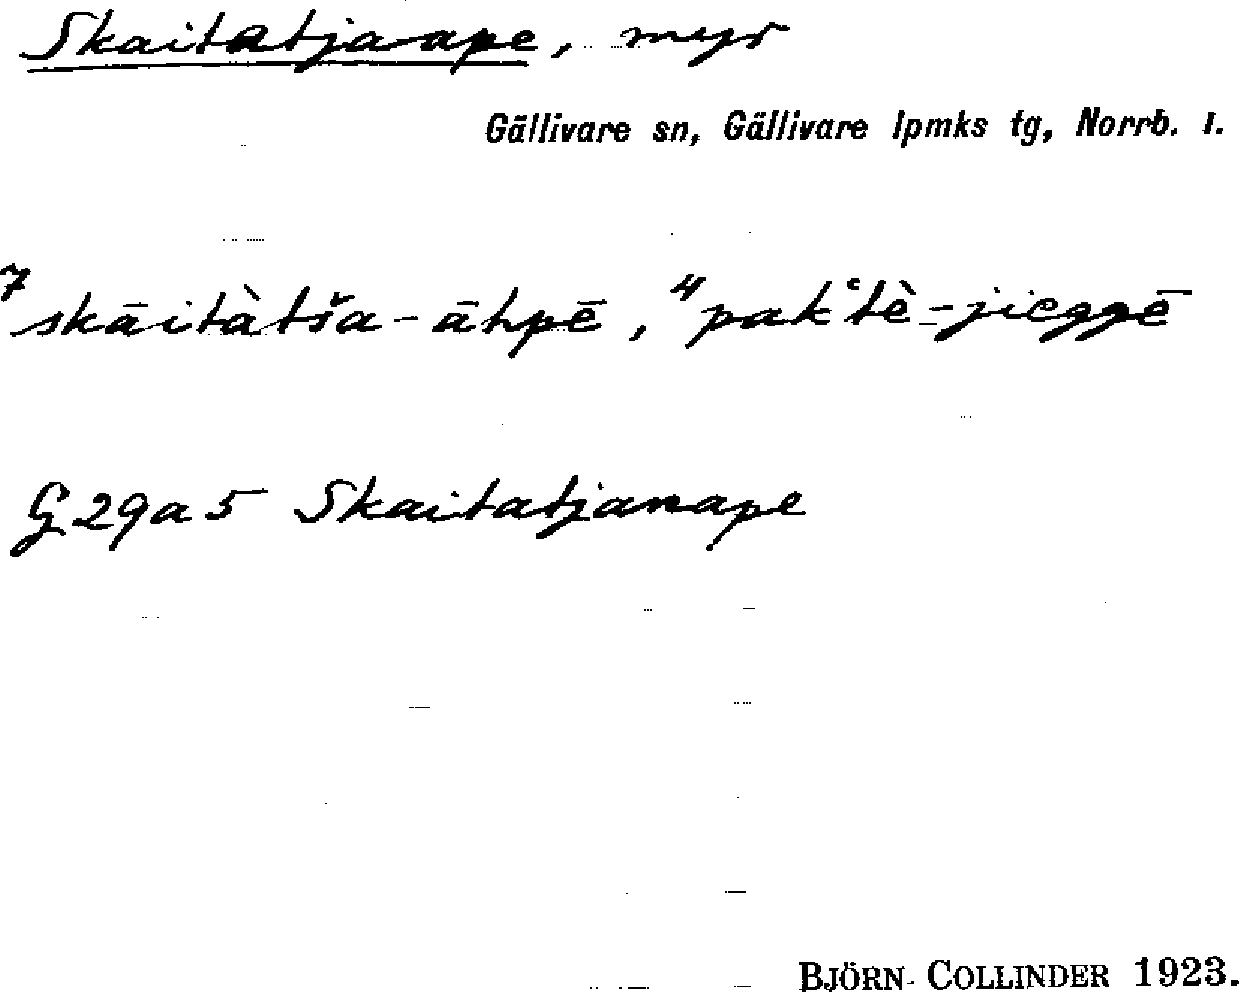 Skaitatjaape, myr
Gällivare sn, Gällivare lpmks tg, Norrb. l.
7 skāitàtša-āhpē, 4 pak‘tè-jieggē
G 29a5 Skaitatjanape
BJÖRN COLLINDER 1923.